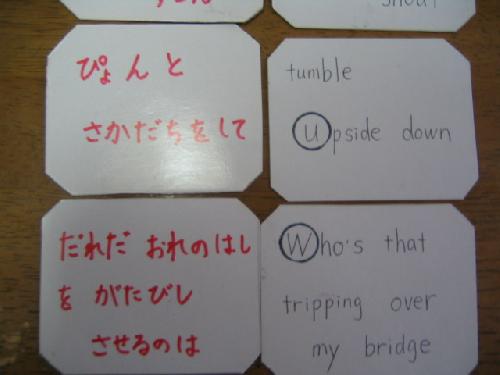 shout
ぴょんと
さかだちをして
tumble
Upside down
だれだ おれのはし
を がたびし
させるのは
Who's that
tripping over
my bridge